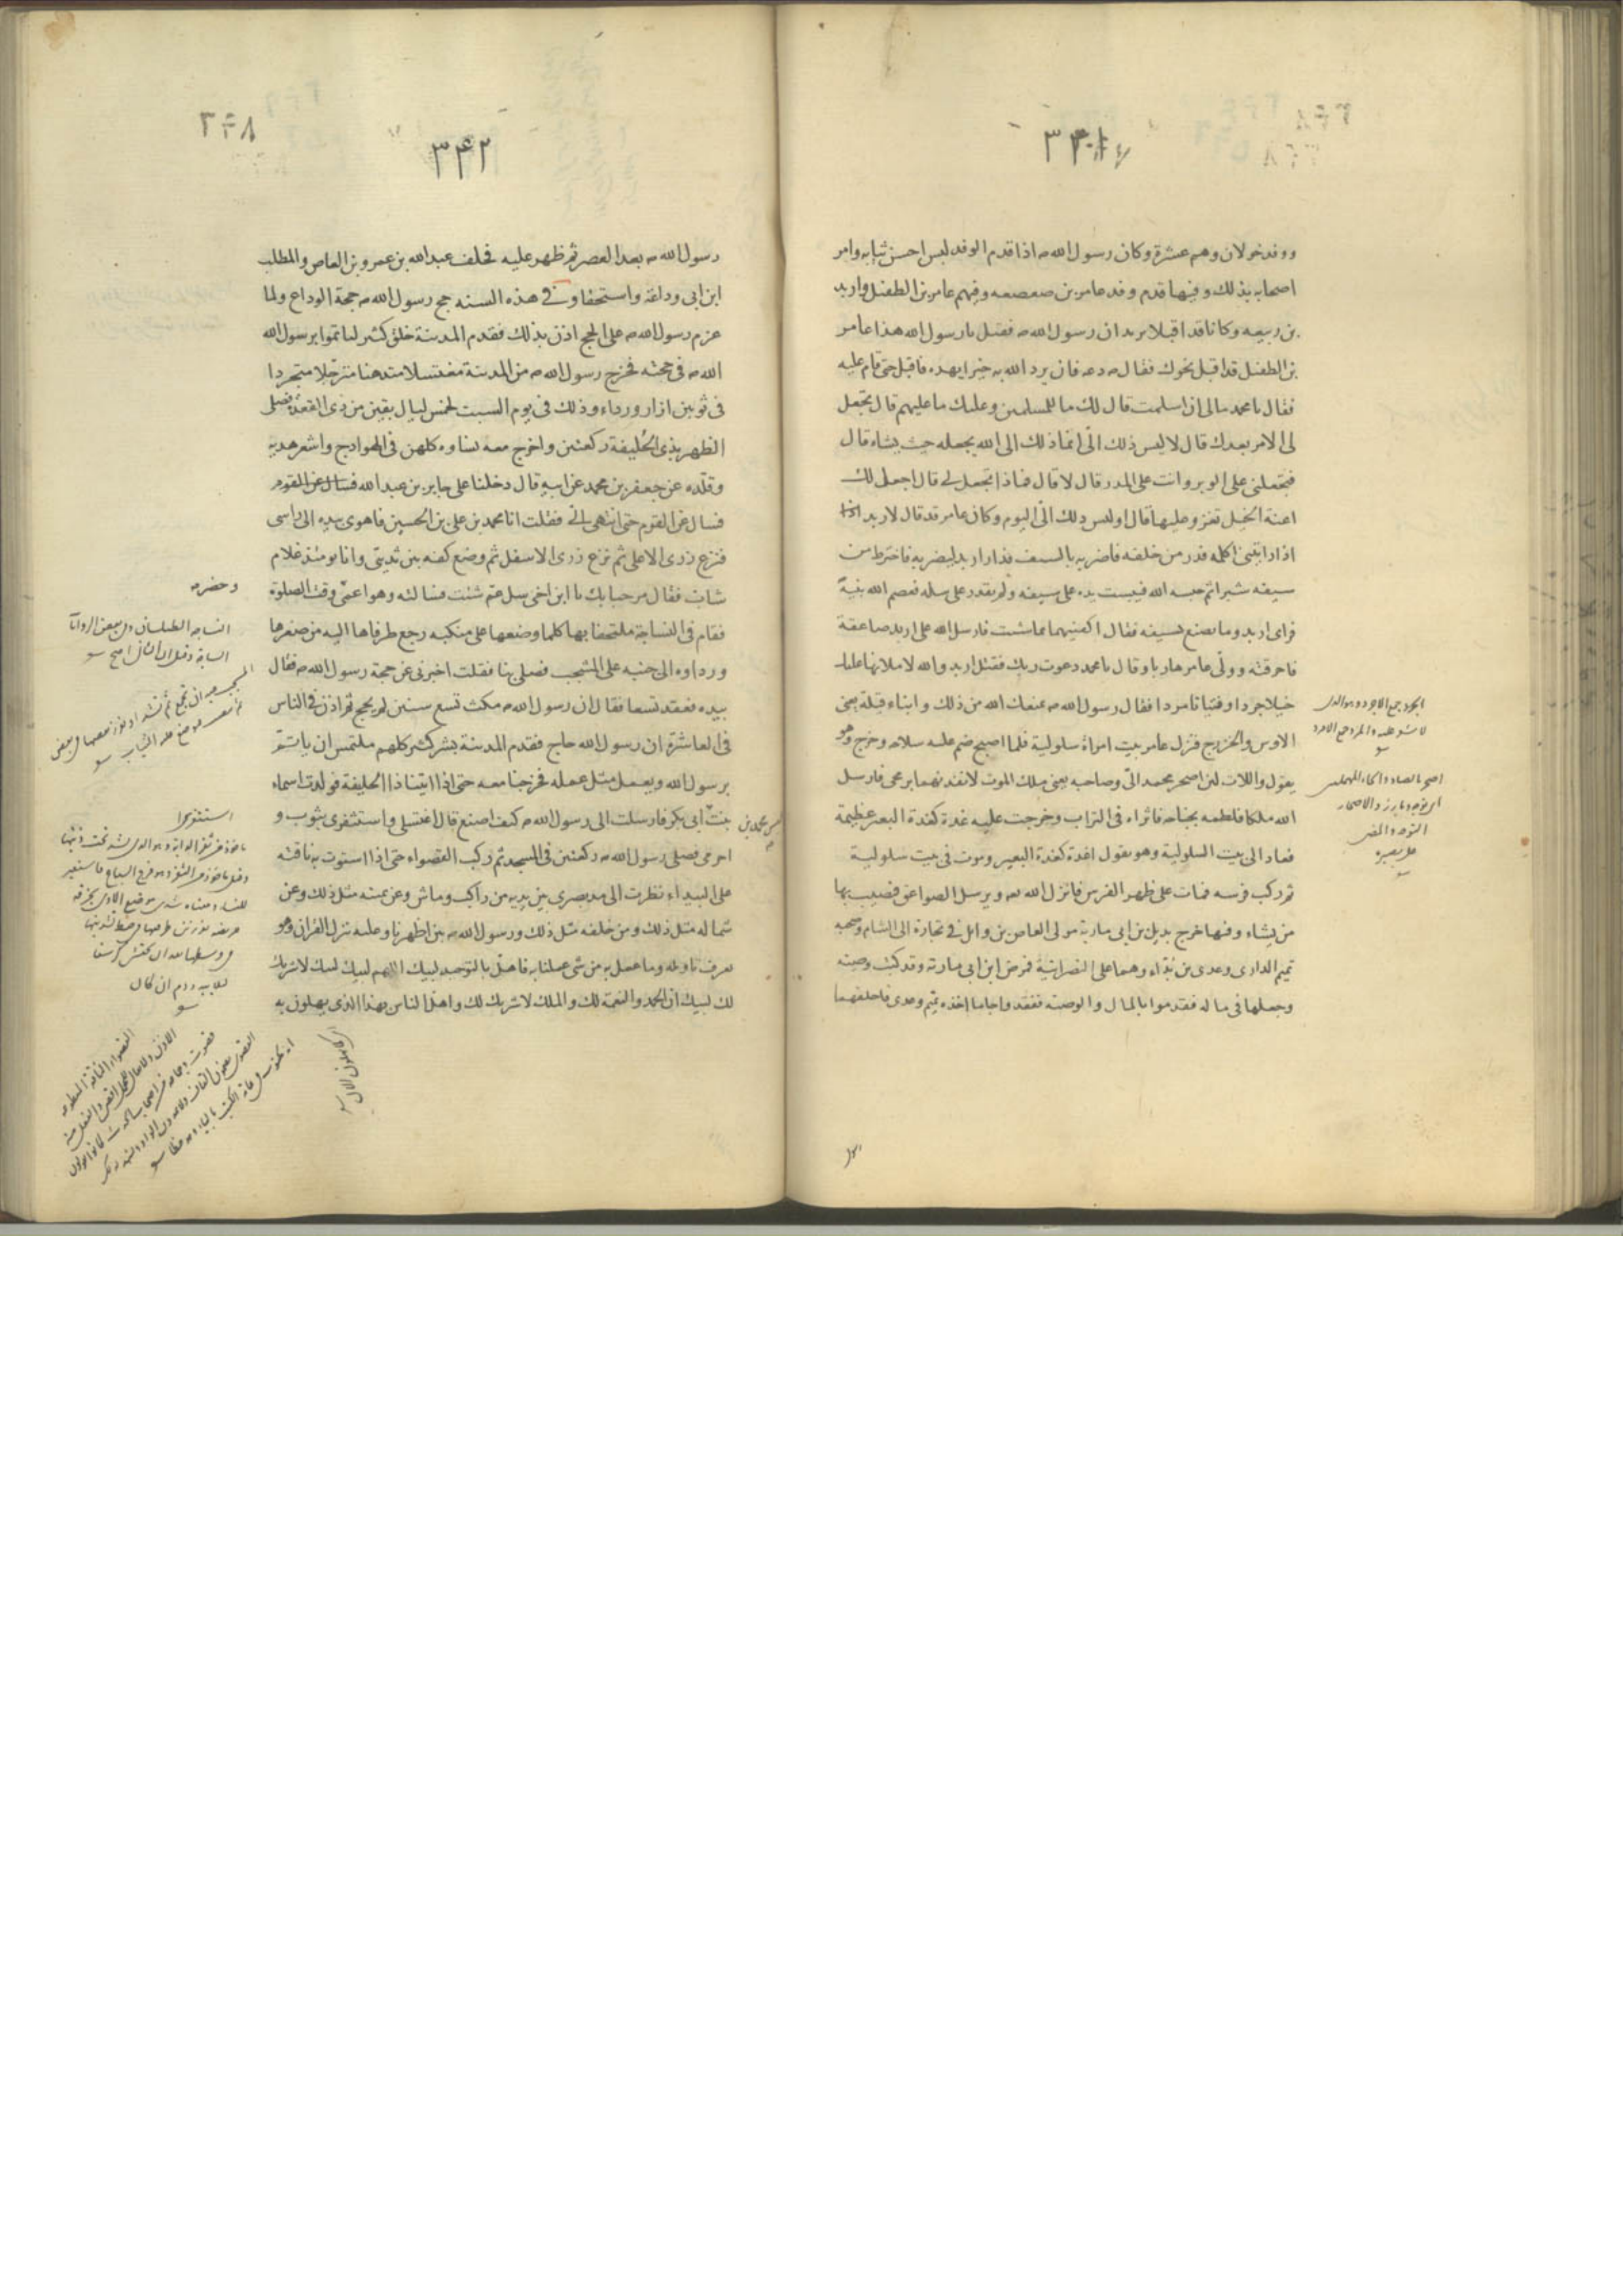 ٣٤١
ووفد خولان وهم عشرة وكان رسول الله ص اذا قدم الوفد لبس احسن ثيابه وامر
اصحابه بذلك وفيها قدم وفد عامر بن صعصعه وفيهم عامر بن الطفيل واربد
بن ربيعه وكانا قد اقبلا يريدان رسول الله ص فقيل يا رسول الله هذا عامر
بن الطفيل قد اقبل نحوك فقال ص دعه فان يرد الله به خيرا يهده فاقبل حتى قام عليه
فقال يا محمد مالى ان اسلمت قال لك ما للمسلمين وعليك ما عليهم قال تجعل
لى الامر بعدك قال لا ليس ذلك الىّ انما ذلك الى الله يجعله حيث يشاء قال
فتجعلنى على الوبر وانت على المدر قال لا قال فماذا تجعل لى قال اجعل لك
اعنة الخيل تغزو عليها قال اوليس ذلك الىّ اليوم وكان عامر قد قال لاربد اذا
اذا رايتنى اكلمه فدر من خلفه فاضربه بالسيف فدار اربد ليضربه فاخترط من
سيفه شبرا ثم حبسه الله فيبست يده على سيفه ولم يقدر على سله فعصم الله نبيه
فراى اربد وما يصنع بسيفه فقال اكفنيهما بما شئت فارسل الله على اربد صاعقة
فاحرقته وولّى عامر هاربا وقال يا محمد دعوت ربك فقتل اربد والله لاملانها عليك
خيلا جردا وفتيانا مردا فقال رسول الله ص يمنعك الله من ذلك وابناء قيلة يعنى
الاوس والخزرج فنزل عامر بيت امراة سلولية فلما اصبح ضم عليه سلاحه وخرج وهو
يقول واللات لئن اصحر محمد الىّ وصاحبه يعنى ملك الموت لانفذنهما برمحى فارسل
الله ملكا فلطمه بجناحه فاثراه فى التراب وخرجت عليه غدة كغدة البعير عظيمة
فعاد الى بيت السلولية وهو يقول اغدة كغدة البعير وموت فى بيت سلولية
ثم ركب فرسه فمات على ظهر الفرس فانزل الله تعه ويرسل الصواعق فيصيب بها
من يشاء وفيها خرج بديل بن ابى مارية مولى العاص بن وائل فى تجارة الى الشام وصحبه
تميم الدارى وعدى بن بدّاء وهما على النصرانية فمرض ابن ابى مارية وقد كتب وصيته
وجعلها فى ماله فقدموا بالمال والوصية ففقدوا جاما اخذه تميم وعدى فاحلفهما
الجرد جمع الاجرد وهو الذى
لا شعر عليه والمرد جمع الامرد
اصحر بالصاد والحاء المهملتين
رسول
٢۴٨
٣٤٢
رسول الله ص بعد العصر ثم ظهر عليه فحلف عبد الله بن عمرو بن العاص والمطلب
ابن ابى وداعة واستحقا وفى هذه السنه حج رسول الله ص حجة الوداع ولما
عزم رسول الله ص على الحج اذن بذلك فقدم المدينة خلق كثير لياتموا برسول الله
الله ص فى حجته فخرج رسول الله ص من المدينة مغتسلا متدهنا مترجلا متجردا
فى ثوبين ازار ورداء وذلك فى يوم السبت لخمس ليال بقين من ذى القعدة فصلى
الظهر بذى الحليفة ركعتين واخرج معه نساوه كلهن فى الهوادج واشعر هديه
وقلده عن جعفر بن محمد عن ابيه قال دخلنا على جابر بن عبد الله فسال عن القوم
فسال عن القوم حتى انتهى الى فقلت انا محمد بن على بن الحسين فاهوى بيده الى راسى
فنزع زرى الاعلى ثم نزع زرى الاسفل ثم وضع كفه بين ثديىّ وانا يومئذ غلام
شاب فقال مرحبا بك يا ابن اخى سل عمّ شئت فسالته وهو اعمى وقت الصلوة
فقام فى النساجة ملتحفا بها كلما وضعها على منكبه رجع طرفاها اليه من صغرها
ورداوه الى جنبه على المشجب فصلى بنا فقلت اخبرنى عن حجة رسول الله ص فقال
بيده فعقد تسعا فقال ان رسول الله ص مكث تسع سنين لم يحج ثم اذن فى الناس
فى العاشرة ان رسول الله حاج فقدم المدينة بشر كثير كلهم ملتمس ان ياتم
برسول الله ويعمل مثل عمله فخرجنا معه حتى اذا اتينا ذا الحليفة فولدت اسماء
بنت ابى بكر فارسلت الى رسول الله ص كيف اصنع قال اغتسلى واستثفرى بثوب و
احرمى فصلى رسول الله ص ركعتين فى المسجد ثم ركب القصواء حتى اذا استوت به ناقته
على البيداء نظرت الى مد بصرى بين يديه من راكب وماش وعن يمينه مثل ذلك وعن
شماله مثل ذلك ومن خلفه مثل ذلك ورسول الله ص بين اظهرنا وعليه ينزل القران وهو
يعرف تاويله وما عمل به من شى عملنا به فاهلّ بالتوحيد لبيك اللهم لبيك لبيك لا شريك
لك لبيك ان الحمد والنعمة لك والملك لا شريك لك واهل الناس بهذا الذى يهلون به
محمد بن
وحضرت
النساجه الطيلسان وفى بعض الروايات
استثفرى